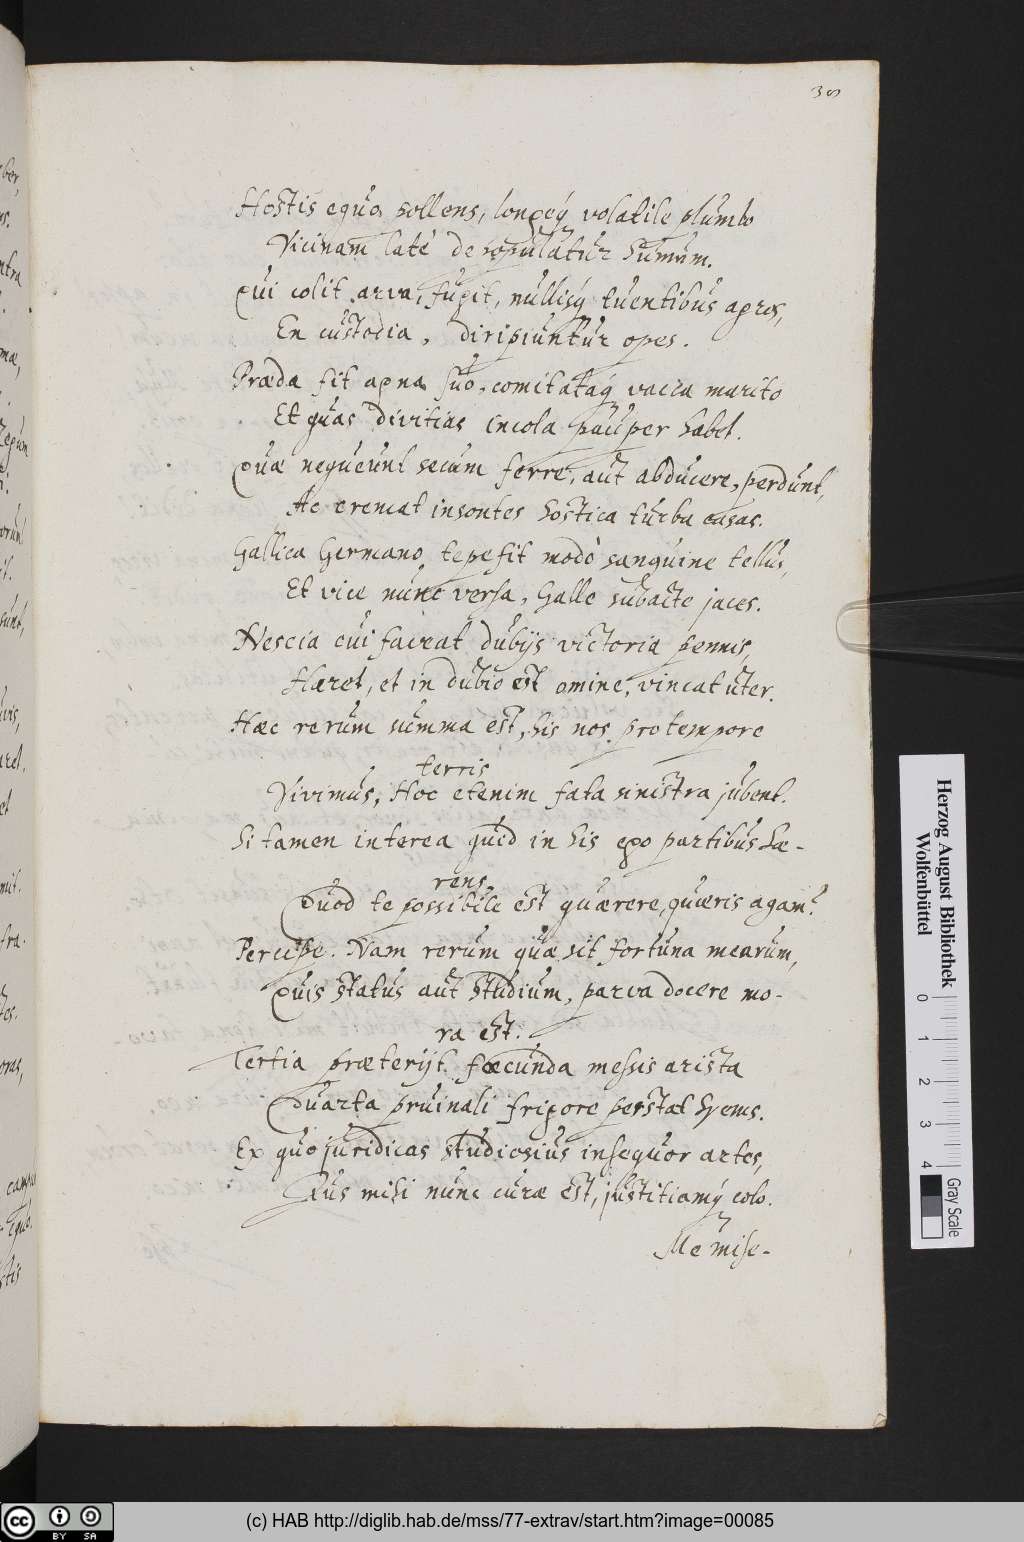 38
Hostis equo pollens, longeq́ volatile plumbo
Vicinam latè depopulatur humum.
Qui colit arva, fugit, nullisq́ tuentibus agros,
En custodia, diripiuntur opes.
Præda fit agna suo, comitataq́ vacca marito
Et quas divitias incola pauper habet.
Quæ nequeunt secum ferre, aut abducere, perdunt,
Ac cremat insontes hostica turba casas.
Gallica Germano tepefit modò sanguine tellus,
Et vice nunc versa, Galle subacte jaces.
Nescia cui faveat dubijs victoria pennis,
Hæret, et in dubio est omine, vincat uter.
Hæc rerum summa est, his nos pro tempore
terris
Vivimus, Hoc etenim fata sinistra jubent.
Si tamen interea quid in his ego partibus hæ-
rens,
Quod te possibile est quærere, quæris agam?
Percipe. Nam rerum quæ sit fortuna mearum,
Quis status aut studium, parva docere mo-
ra est.
Tertia præterijt fœcunda messis arista
Quarta pruinali frigore perstat hyems.
Ex quo juridicas studiosius insequor artes,
Jus mihi nunc curæ est, justitiamq́ colo.
Me mise-
Herzog August Bibliothek
Wolfenbüttel
0 1 2 3 4
Gray Scale
cc BY SA
(c) HAB http://diglib.hab.de/mss/77-extrav/start.htm?image=00085